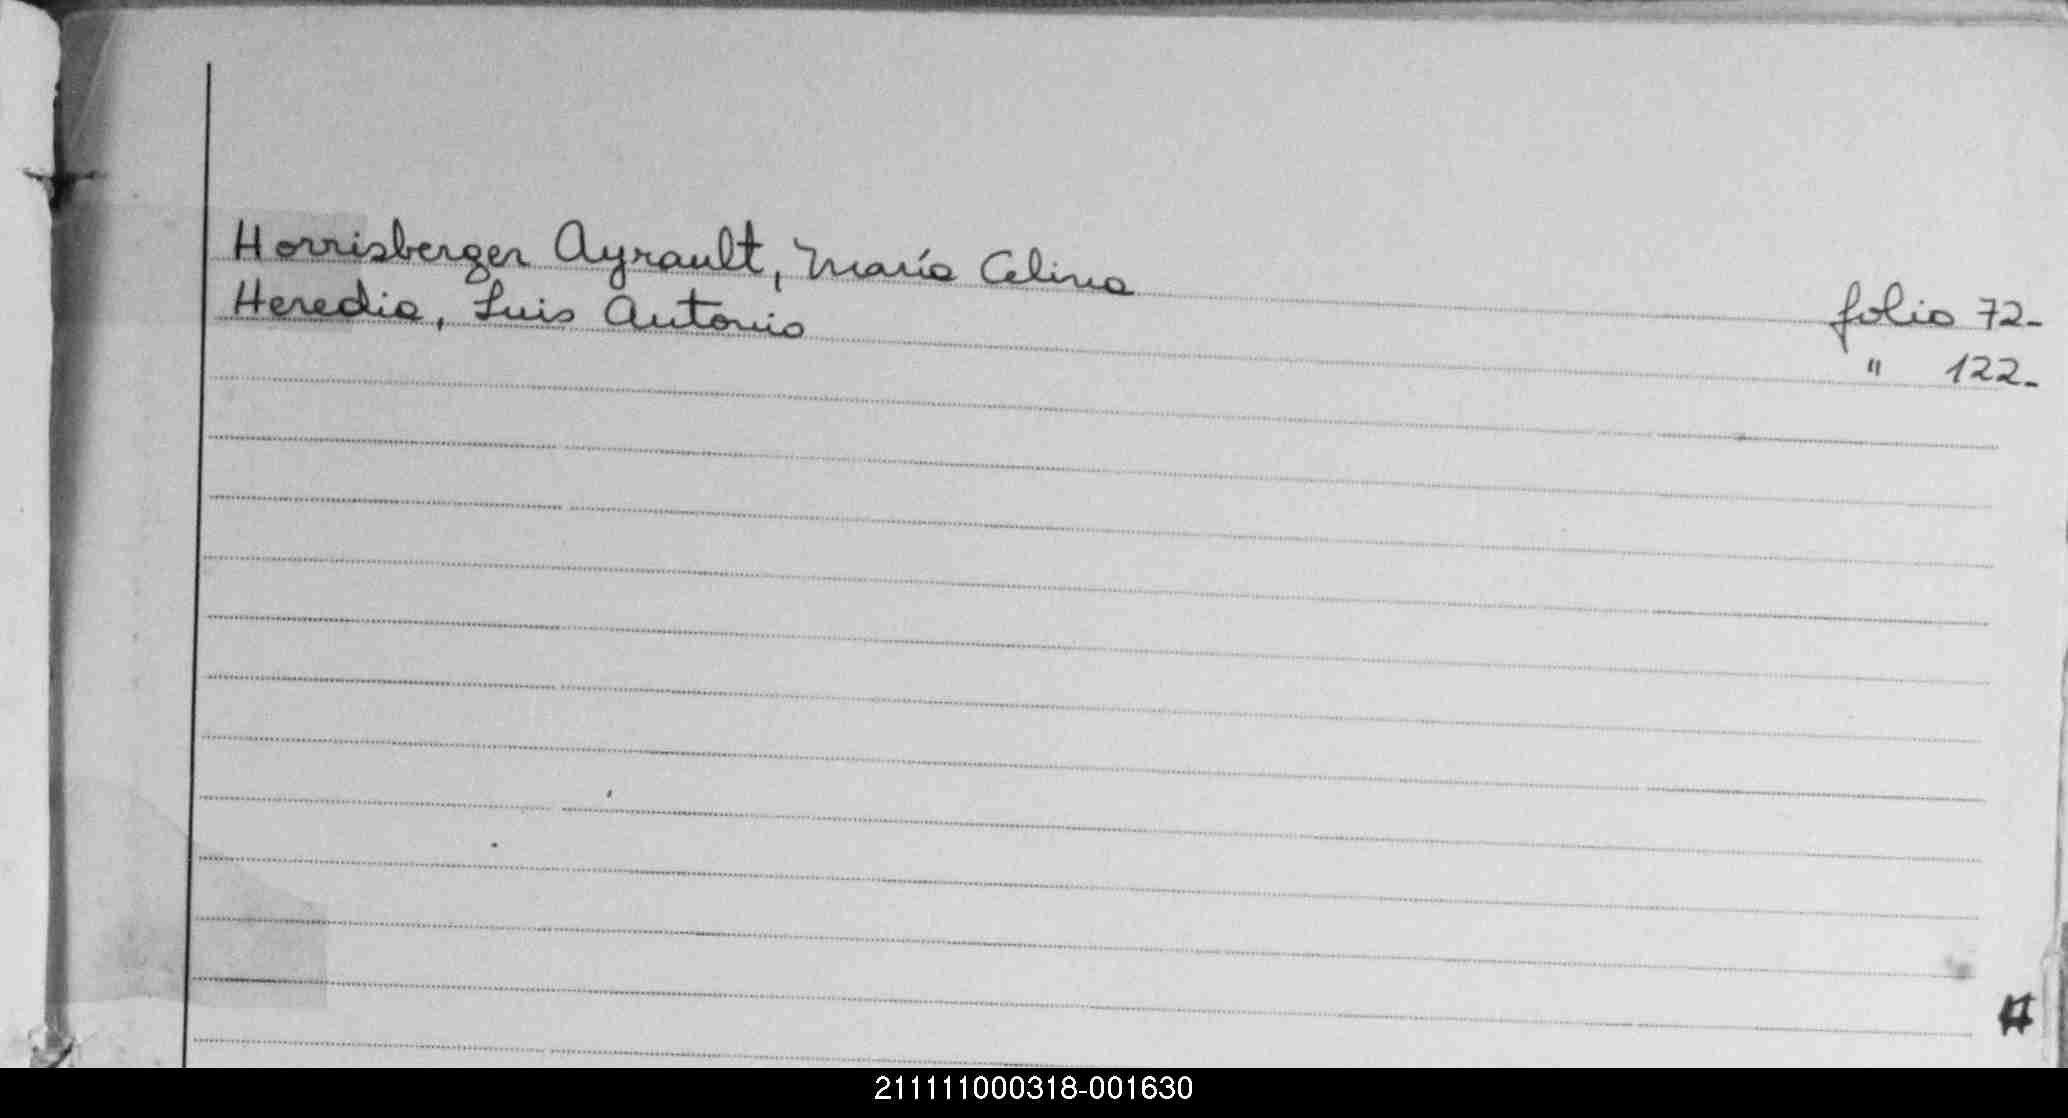 Horrisberger Ayrault, María Celina folio 72-
Heredia, Luis Antonio " 122-
H
211111000318-001630